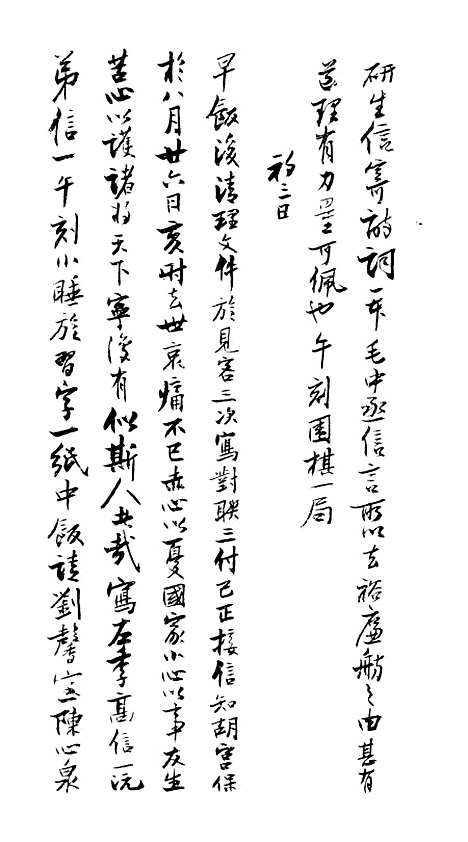 研生信寄詩詞一本毛中丞信言所以去裕廬舫之由甚有
道理有力量可佩也午刻圍棋一局
初三日
早飯後清理文件於見客三次寫對聯三付巳正接信知胡宮保
於八月廿六日亥時去世哀痛不已赤心以憂國家小心以事友生
苦心以護諸將天下寧復有似斯人者哉寫左季高信一沅
弟信一午刻小睡旋習字一紙中飯請劉馨室陳心泉